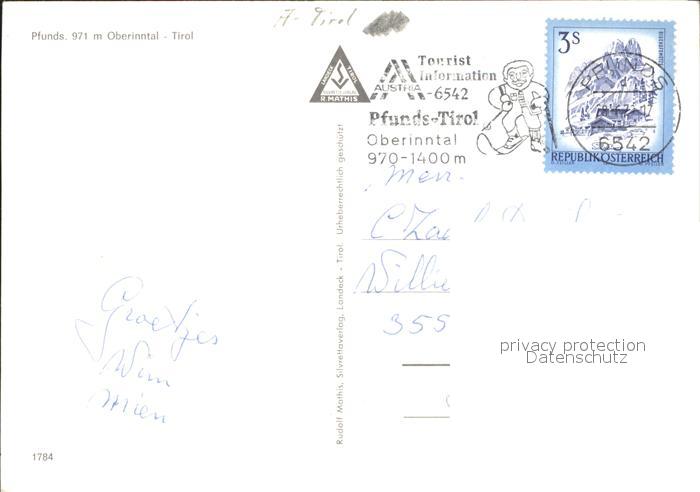 A-Tirol
Pfunds. 971 m Oberinntal - Tirol
R. MATHIS
Tourist
Information
AUSTRIA -6542
Pfunds-Tirol
Oberinntal
970-1400 m
3 S
PFUNDS
6542
REPUBLIK ÖSTERREICH
Rudolf Mathis, Silvrettaverlag, Landeck - Tirol. Urheberrechtlich geschützt!
Willie
355
Groetjes
Wim
Mien
privacy protection
Datenschutz
1784